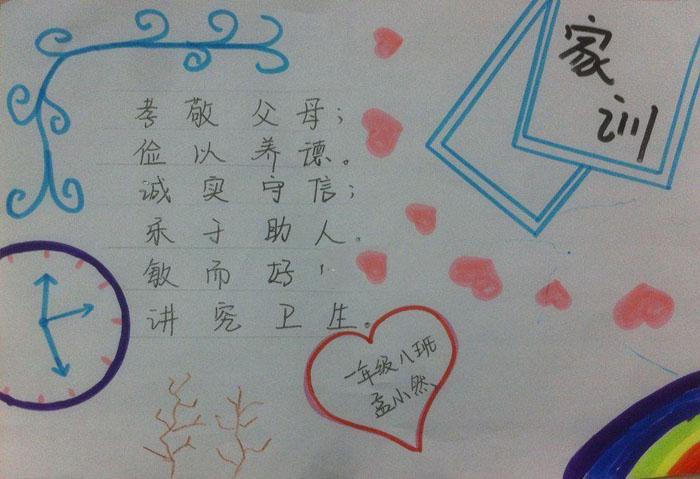 家训
孝敬父母；
俭以养德。
诚实守信；
乐于助人。
敏而好
讲究卫生。
一年级八班
孟小然